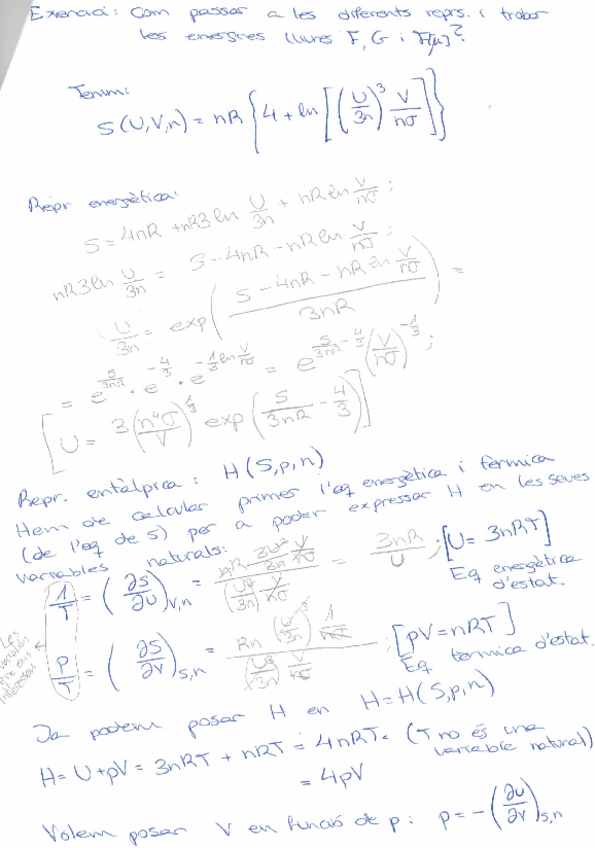 Exercici: Com passar a les diferents reprs. i trobar
les energies lliures F, G i F[μ]?
Tenim:
S(U,V,n) = nR {4 + ln [(U/3n)³ V/nσ]}
Repr energètica:
S = 4nR + nR3 ln U/3n + nR ln V/nσ ;
nR3 ln U/3n = S - 4nR - nR ln V/nσ ;
U/3n = exp( (S - 4nR - nR ln V/nσ) / 3nR ) =
= e^(S/3nR) · e^(-4/3) · e^(-1/3 ln V/nσ) = e^(S/3nR - 4/3) (V/nσ)^(-1/3) ;
[U = 3 (n⁴σ/V)^(1/3) exp(S/3nR - 4/3)]
Repr. entàlpica: H(S,p,n)
Hem de calcular primer l'eq energètica i tèrmica
(de l'eq de S) per a poder expressar H en les seves
variables naturals:
1/T = (∂S/∂U)V,n = = 3nR/U ; [U = 3nRT]
Eq energètica
d'estat.
P/T = (∂S/∂V)S,n = ; [pV = nRT]
Eq tèrmica d'estat.
Ja podem posar H en H = H(S,p,n)
H = U + pV = 3nRT + nRT = 4nRT = (T no és una
variable natural)
= 4pV
Volem posar V en funció de p: p = -(∂U/∂V)S,n